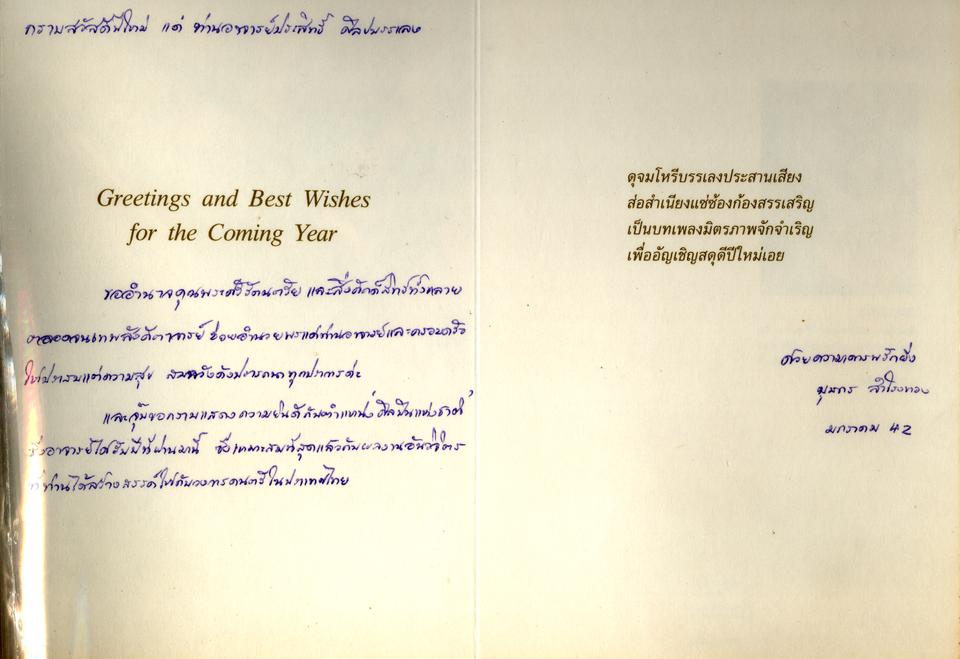 กราบสวัสดีปีใหม่ แด่ ท่านอาจารย์ประสิทธิ์ ศิลปบรรเลง
Greetings and Best Wishes
for the Coming Year
ขออำนาจคุณพระศรีรัตนตรัย และสิ่งศักดิ์สิทธิ์ทั้งหลาย
ตลอดจนเทพสังคีตาจารย์ ช่วยอำนวยพรแด่ท่านอาจารย์และครอบครัว
ให้ประสบแต่ความสุข สมหวังดังปรารถนาทุกประการค่ะ
และ ขอกราบแสดงความยินดีกับตำแหน่ง ศิลปินแห่งชาติ
ซึ่งอาจารย์ได้รับปีที่ผ่านมานี้ ซึ่งเหมาะสมที่สุดแล้วกับผลงานอันวิจิตร
ที่ท่านได้สร้างสรรค์ให้กับวงการดนตรีในประเทศไทย
ดุจมโหรีบรรเลงประสานเสียง
ส่อสำเนียงแซ่ซ้องก้องสรรเสริญ
เป็นบทเพลงมิตรภาพจักจำเริญ
เพื่ออัญเชิญสดุดีปีใหม่เอย
ด้วยความเคารพรักยิ่ง
สำโรงทอง
มกราคม 42